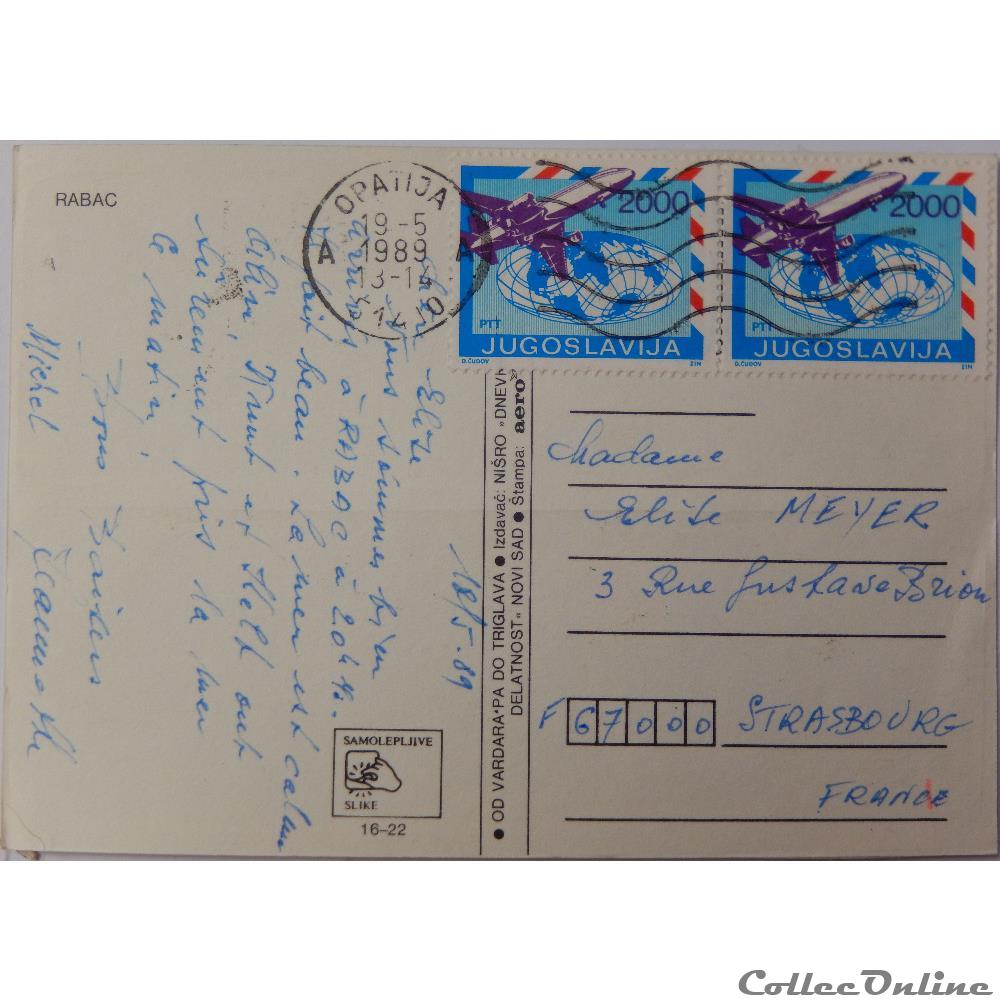 RABAC
OPATIJA
19-5
A 1989 A
13-14
51410
2000
PTT
JUGOSLAVIJA
D.ČUDOV ZIN
2000
PTT
JUGOSLAVIJA
D.ČUDOV ZIN
18/5.89
Elise
Nous sommes bien
arrivés à RABAC à 20h½.
Il fait beau. La mer est calme
Aline, Knut et
seulement pris la mer
ce matin.
Bons Baisers
Michel Jeannette
● OD VARDARA*PA DO TRIGLAVA ● Izdavač: NIŠRO »DNEV
DELATNOST« NOVI SAD ● Štampa: aero
SAMOLEPLJIVE
SLIKE
16–22
Madame
Elise MEYER
3 Rue Gustave Brion
F 67000 STRASBOURG
FRANCE
CollecOnline